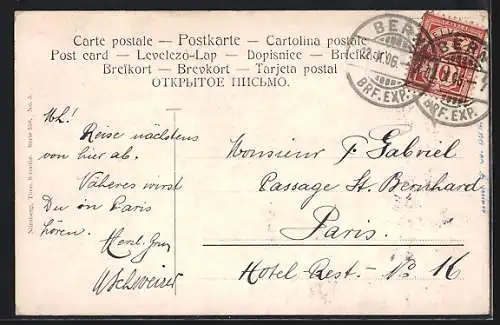 Carte postale — Postkarte — Cartolina postale
Post card — Levelező-Lap — Dopisnice — Briefkaart
Brefkort — Brevkort — Tarjeta postal
ОТКРЫТОЕ ПИСЬМО.
BERN
BRF. EXP.
BERN
BRF. EXP.
Reise nächstens
von hier ab.
Näheres wirst
Du in Paris
hören.
Herzl. Gruss
Schweizer
Monsieur F. Gabriel
Passage St. Bernhard
Paris.
Hotel-Rest. - No 16